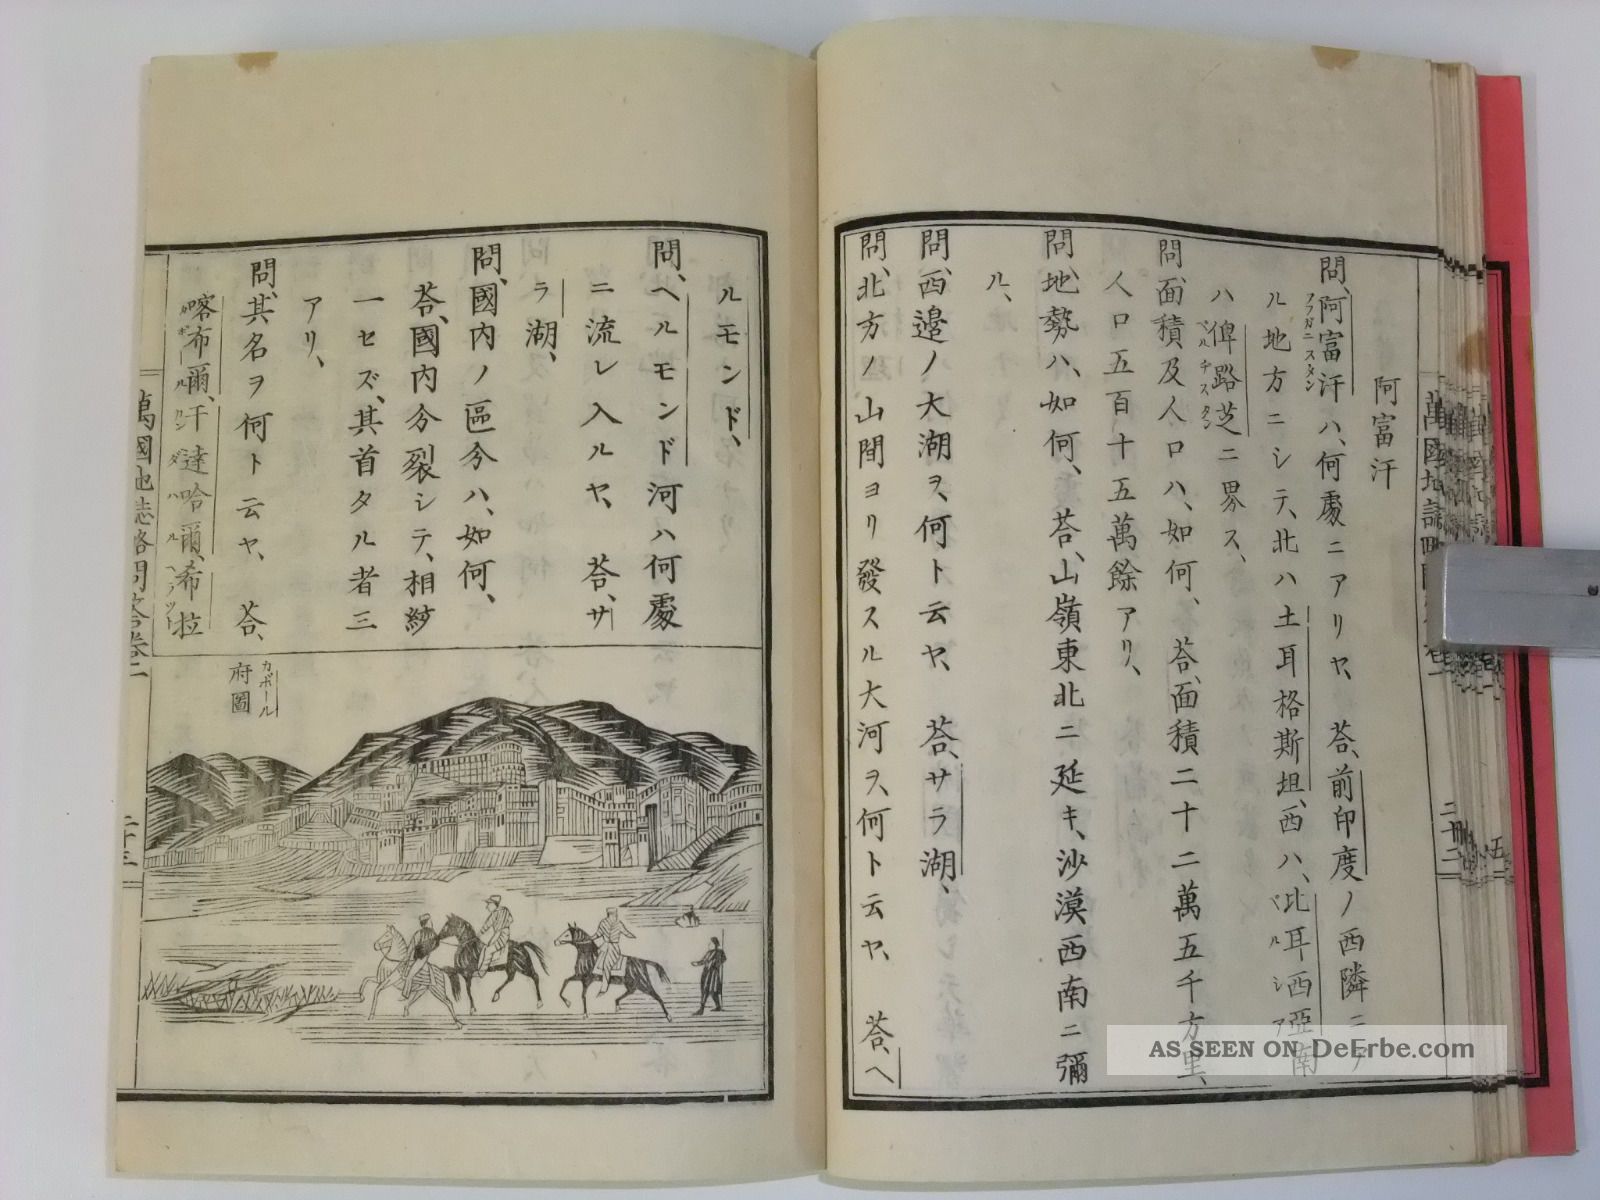 阿富汗
問、阿富汗ハ、何處ニアリヤ、 荅、前印度ノ西隣ニ
アフガニスタン
ル地方ニシテ、北ハ土耳格斯坦、西ハ、比耳西亞南
ペルシア
ハ俾路芝ニ界ス、
ベルチスタン
問、面積及人口ハ、如何、 荅、面積二十二萬五千方里、
人口五百十五萬餘アリ、
問、地勢ハ、如何、荅、山嶺東北ニ延キ、沙漠西南ニ彌
ル、
問、西邉ノ大湖ヲ、何ト云ヤ、 荅、サラ湖、
問、北方ノ山間ヨリ發スル大河ヲ、何ト云ヤ、 荅、ヘ
ルモンド、
問、ヘルモンド河ハ何處
ニ流レ入ルヤ、 荅、サ
ラ湖、
問、國内ノ區分ハ、如何、
荅、國内分裂シテ、相紛
一セズ、其首タル者三
アリ、
問、其名ヲ何ト云ヤ、 荅、
喀布爾、干達哈爾、希拉
カボール カンダハル ヘラット
カボール
府圖
萬國地誌略問答巻二
二十三
二十二
AS SEEN ON DeErbe.com